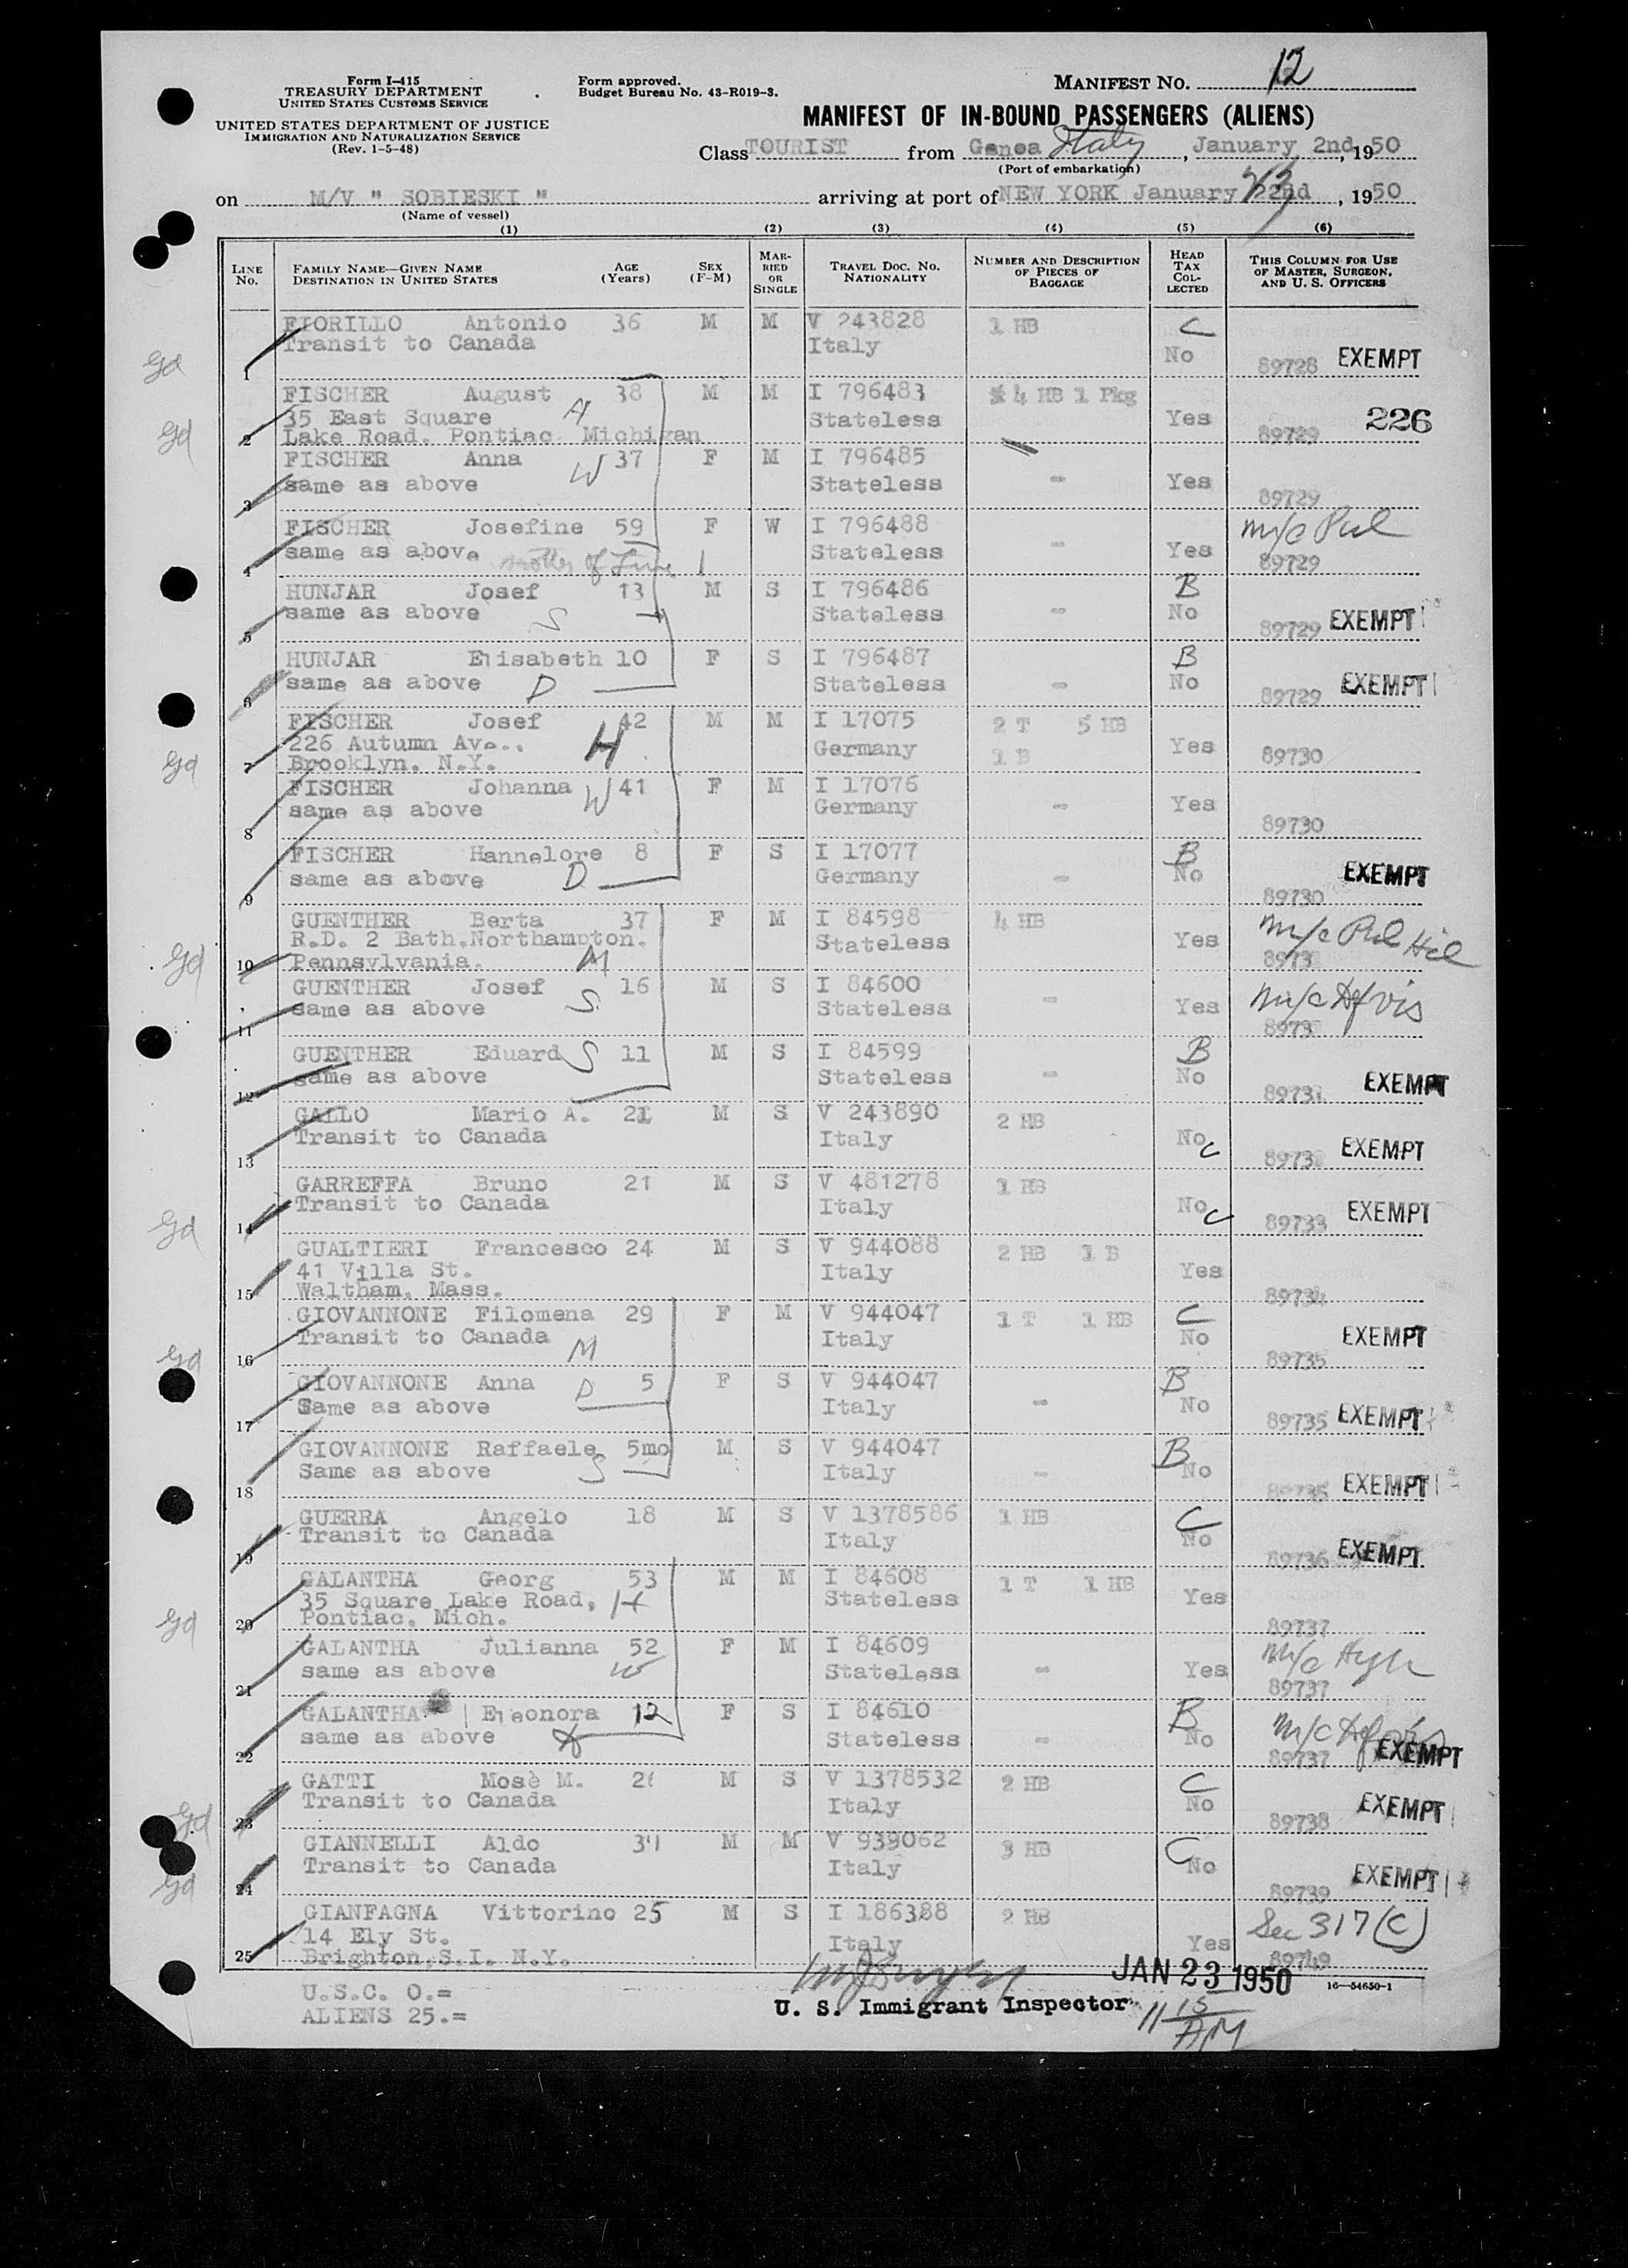 Form I-415
TREASURY DEPARTMENT
UNITED STATES CUSTOMS SERVICE
UNITED STATES DEPARTMENT OF JUSTICE
IMMIGRATION AND NATURALIZATION SERVICE
(Rev. 1-5-48)
Form approved.
Budget Bureau No. 43-R019-3.
MANIFEST No. 12
MANIFEST OF IN-BOUND PASSENGERS (ALIENS)
Class TOURIST from Genoa Italy, January 2nd, 1950
(Port of embarkation)
on M/V " SOBIESKI " arriving at port of NEW YORK January 22nd 23, 1950
(Name of vessel)
(1) (2) (3) (4) (5) (6)
LINE No. FAMILY NAME—GIVEN NAME DESTINATION IN UNITED STATES AGE (Years) SEX (F-M) MARRIED OR SINGLE TRAVEL DOC. No. NATIONALITY NUMBER AND DESCRIPTION OF PIECES OF BAGGAGE HEAD TAX COLLECTED THIS COLUMN FOR USE OF MASTER, SURGEON, AND U. S. OFFICERS
FIORILLO Antonio 36 M M V 243828 1 HB C
Transit to Canada Italy No
1 89728 EXEMPT
FISCHER August 38 M M I 796483 4 HB 1 Pkg
35 East Square H Stateless Yes 226
2 Lake Road. Pontiac Michigan 89729
FISCHER Anna W 37 F M I 796485
same as above Stateless - Yes
3 89729
FISCHER Josefine 59 F W I 796488 m/c
same as above mother of Stateless - Yes
4 89729
HUNJAR Josef 13 M S I 796486 B
same as above S Stateless - No
5 89729 EXEMPT
HUNJAR Elisabeth 10 F S I 796487 B
same as above D Stateless - No
6 89729 EXEMPT
FISCHER Josef 42 M M I 17075 2 T 5 HB
226 Autumn Ave., H Germany 1 B Yes
7 Brooklyn, N.Y. 89730
FISCHER Johanna W 41 F M I 17076
same as above Germany - Yes
8 89730
FISCHER Hannelore 8 F S I 17077 B
same as above D Germany - No
9 89730 EXEMPT
GUENTHER Berta 37 F M I 84598 4 HB m/c
R.D. 2 Bath,Northampton, Stateless Yes
10 Pennsylvania. M 8973
GUENTHER Josef S 16 M S I 84600
same as above Stateless - Yes m/c Df vis
11 8973
GUENTHER Eduard S 11 M S I 84599 B
same as above Stateless - No
12 8973 EXEMPT
GALLO Mario A. 21 M S V 243890 2 HB
Transit to Canada Italy No C
13 8973 EXEMPT
GARREFFA Bruno 21 M S V 481278 1 HB
Transit to Canada Italy No C
14 89733 EXEMPT
GUALTIERI Francesco 24 M S V 944088 2 HB 1 B
41 Villa St. Italy Yes
15 Waltham, Mass. 89734
GIOVANNONE Filomena 29 F M V 944047 1 T 1 HB C
Transit to Canada M Italy No
16 89735 EXEMPT
GIOVANNONE Anna D 5 F S V 944047 B
Same as above Italy - No
17 89735 EXEMPT
GIOVANNONE Raffaele S 5mo M S V 944047 B
Same as above Italy - No
18 89735 EXEMPT
GUERRA Angelo 18 M S V 1378586 1 HB C
Transit to Canada Italy No
19 89736 EXEMPT
GALANTHA Georg 53 M M I 84608 1 T 1 HB
35 Square Lake Road, H Stateless Yes
20 Pontiac, Mich. 89737
GALANTHA Julianna 52 F M I 84609 m/c
same as above W Stateless - Yes
21 89737
GALANTHA Eleonora 12 F S I 84610 B m/c
same as above Stateless - No
22 89737 EXEMPT
GATTI Mosè M. M S V 1378532 2 HB C
Transit to Canada Italy No
23 89738 EXEMPT
GIANNELLI Aldo M M V 939062 3 HB C
Transit to Canada Italy No
24 89739 EXEMPT
GIANFAGNA Vittorino 25 M S I 186388 2 HB Sec 317 (C)
14 Ely St. Italy Yes
25 Brighton,S.I. N.Y. 89749
U.S.C. 0.=
ALIENS 25.=
U. S. Immigrant Inspector
JAN 23 1950
11 15 AM
16—54650-1